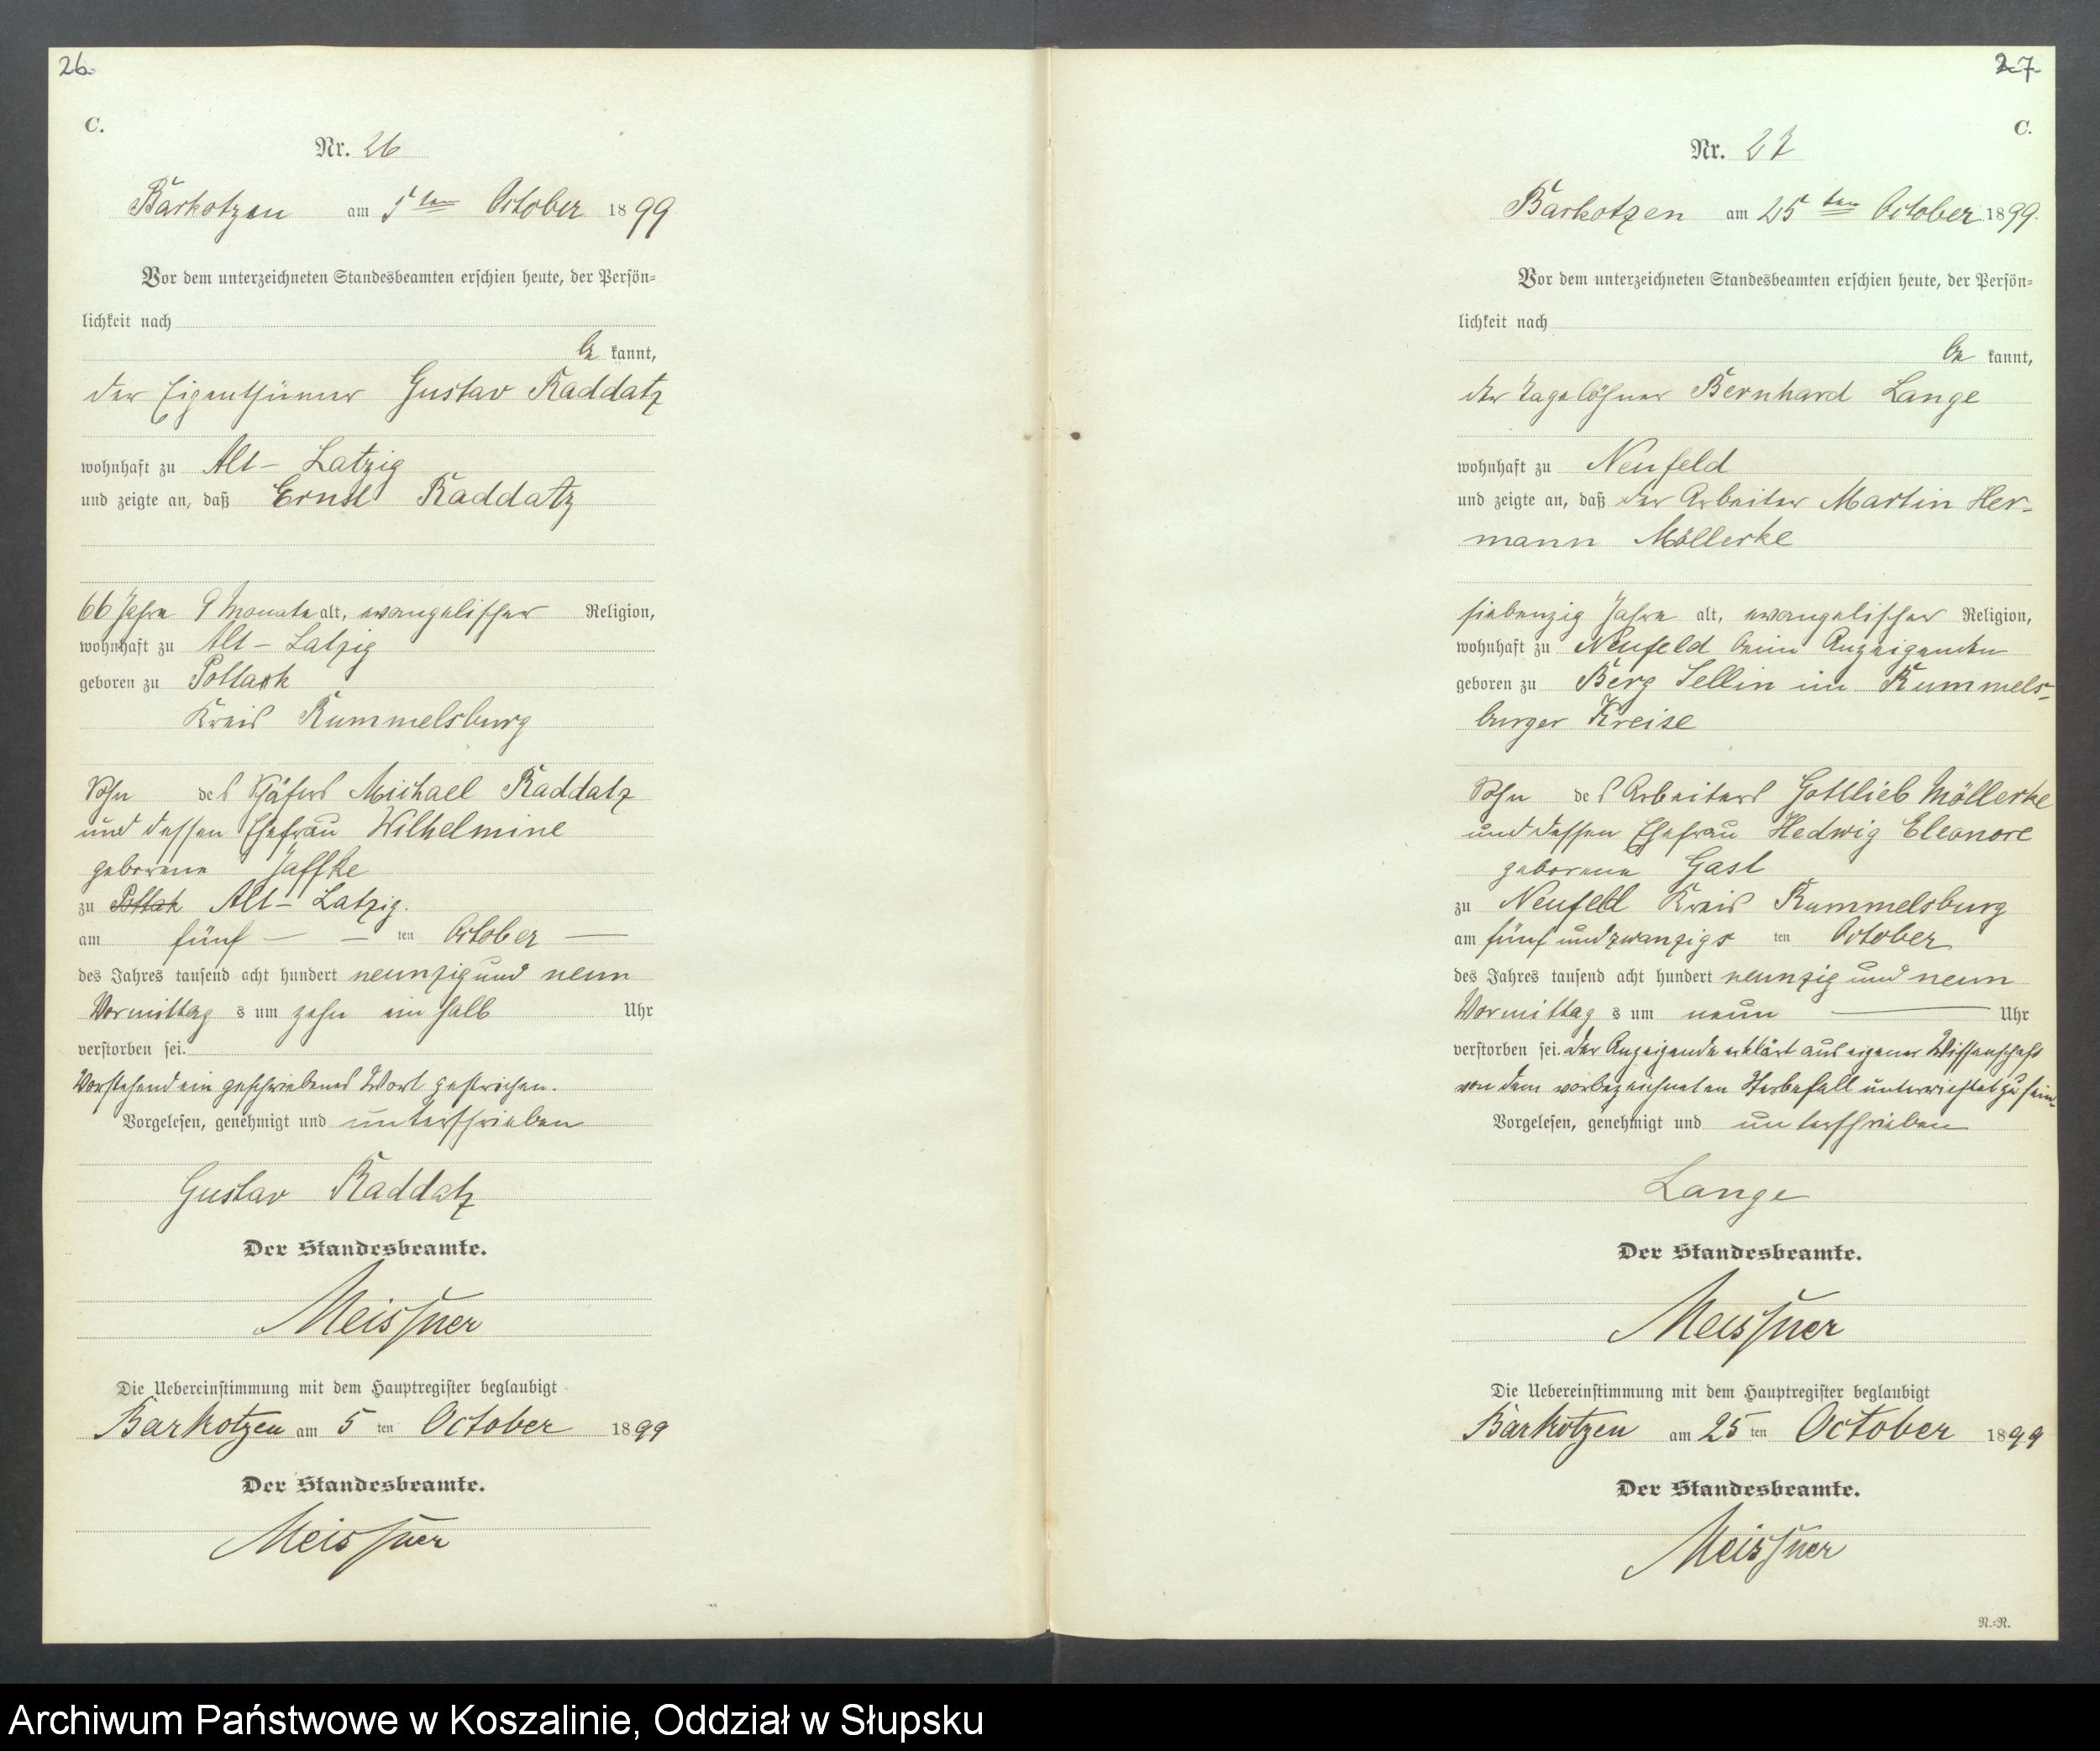 26.
C.
Nr. 26
Barkotzen am 5ten October 1899
Vor dem unterzeichneten Standesbeamten erschien heute, der Persön=
lichkeit nach
be kannt,
der Eigenthümer Gustav Raddatz
wohnhaft zu Alt- Latzig
und zeigte an, daß Ernst Raddatz
66 Jahre 9 Monate alt, evangelischer Religion,
wohnhaft zu Alt- Latzig
geboren zu Pottack
Kreis Rummelsburg
Sohn des Schäfers Michael Raddatz
und dessen Ehefrau Wilhelmine
geborene Jaffke
zu Pottack Alt- Latzig.
am fünf — — ten October —
des Jahres tausend acht hundert neunzig und neun
Vormittag s um zehn ein halb Uhr
verstorben sei.
Vorstehend ein geschriebenes Wort gestrichen.
Vorgelesen, genehmigt und unterschrieben
Gustav Raddatz
Der Standesbeamte.
Meissner
Die Uebereinstimmung mit dem Hauptregister beglaubigt
Barkotzen am 5 ten October 1899
Der Standesbeamte.
Meissner
27.
C.
Nr. 27
Barkotzen am 25ten October 1899.
Vor dem unterzeichneten Standesbeamten erschien heute, der Persön=
lichkeit nach
be kannt,
der Tagelöhner Bernhard Lange
wohnhaft zu Neufeld
und zeigte an, daß der Arbeiter Martin Her-
mann Möllerke
siebenzig Jahre alt, evangelischer Religion,
wohnhaft zu Neufeld beim Anzeigenden
geboren zu Berg Sellin im Rummels-
burger Kreise
Sohn des Arbeiters Gottlieb Möllerke
und dessen Ehefrau Hedwig Eleonore
geborene Gast
zu Neufeld Kreis Rummelsburg
am fünf und zwanzigs ten October
des Jahres tausend acht hundert neunzig und neun
Vormittag s um neun — Uhr
verstorben sei. Der Anzeigende erklärt aus eigener Wissenschaft
von dem vorbezeichneten Sterbefall unterrichtet zu sein.
Vorgelesen, genehmigt und unterschrieben
Lange
Der Standesbeamte.
Meissner
Die Uebereinstimmung mit dem Hauptregister beglaubigt
Barkotzen am 25 ten October 1899
Der Standesbeamte.
Meissner
N.=N.
Archiwum Państwowe w Koszalinie, Oddział w Słupsku